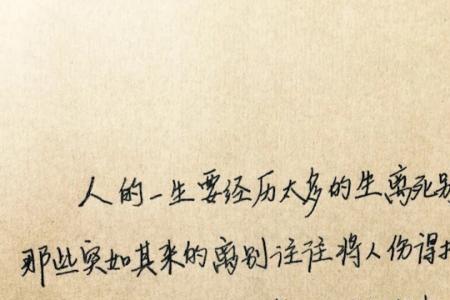 人的一生要经历太多的生离死别
那些突如其来的离别往往将人伤得措